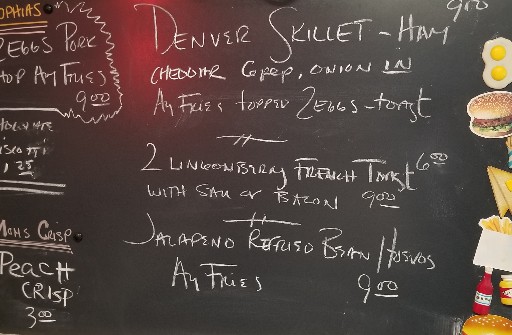 OPHIAS
2 EGGS PORK
HOP AM FRIES
9 00
, 25
MOMS CRISP
PEACH
CRISP
3 00
9 00
DENVER SKILLET - HAM
CHEDDAR G PEP, ONION IN
AM FRIES TOPPED 2 EGGS - TOAST
2 LINGONBERRY FRENCH TOAST 6 00
WITH SAU OR BACON 9 00
JALAPENO REFRIED BEAN HUEVOS
AM FRIES 9 00